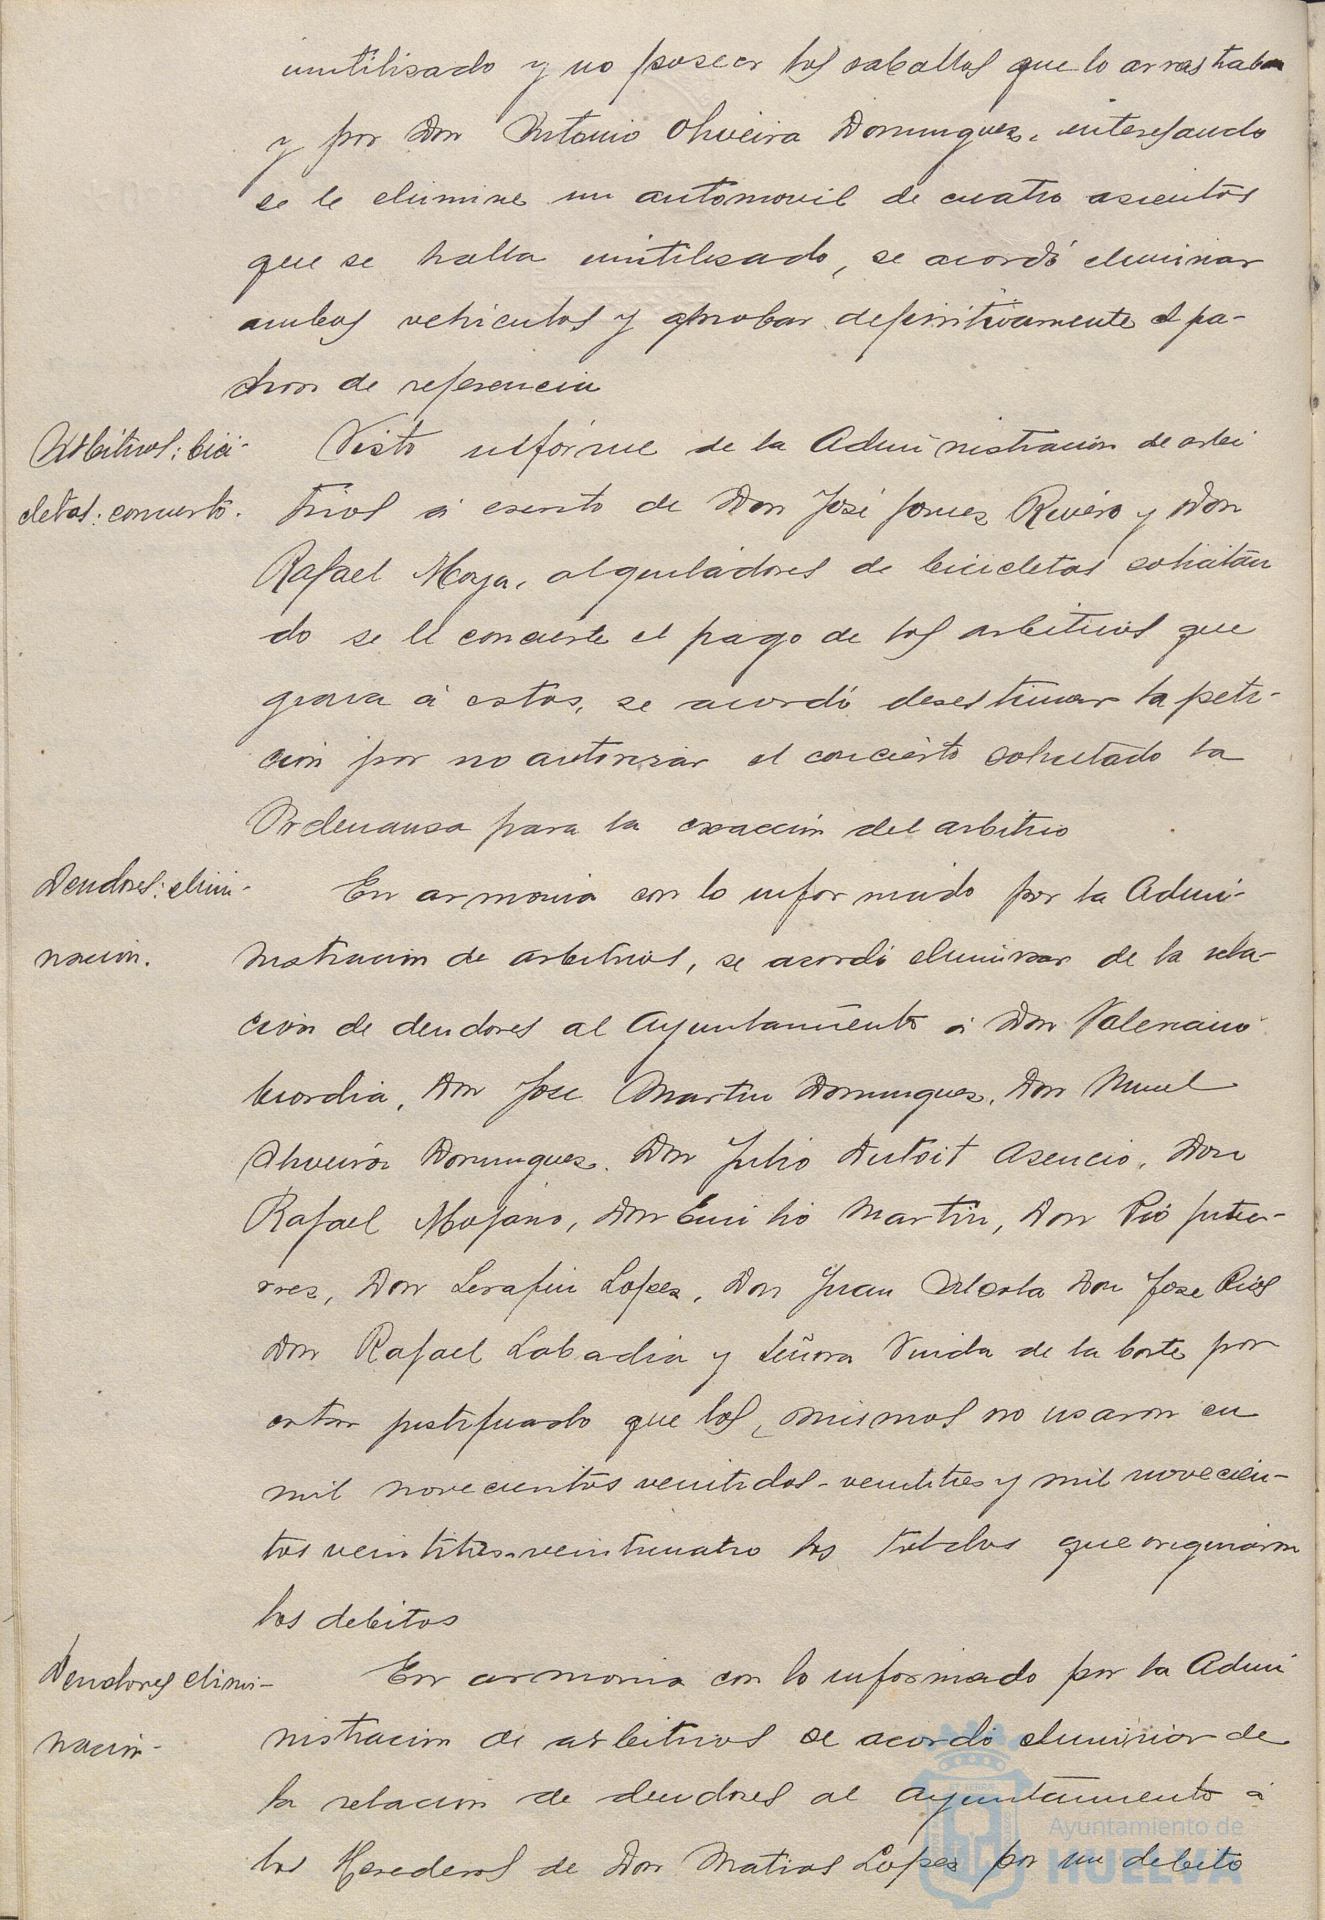 inutilisado y no poseer los caballos que lo arrastraban
y por Don Antonio Oliveira Dominguez, interesando
se le elimine un automovil de cuatro asientos
que se halla inutilisado, se acordó eliminar
ambos vehiculos y aprobar definitivamente el pa-
dron de referencia
Arbitrios: bici-
cletas: concierto.
Visto informe de la Administración de arbi
trios á escrito de Don José Gomez Rivero y Don
Rafael Moya, alquiladores de bicicletas solicitan
do se le concierte el pago de los arbitrios que
grava á estas, se acordó desestimar la peti-
ción por no autorizar el concierto solicitado la
Ordenanza para la exacción del arbitrio
Deudores: elimi-
nación.
En armonia con lo informado por la Admi-
nistracion de arbitrios, se acordó eliminar de la rela-
ción de deudores al Ayuntamiento á Don Valeriano
Don Jose Martin Dominguez, Don
Oliveira Dominguez, Don Julio Dutoit Asencio, Don
Rafael Mojano, Don Emilio Martin, Don Pió Gutie-
rrez, Don Serafin Lopez, Don Juan Don Jose Rios
Don Rafael Labadia y Señora Viuda de la Corte por
estar justificado que los mismos no usaron en
mil novecientos veintidos-veintitres y mil novecien-
tos veintitres-veinticuatro los toldos que originaron
los debitos
Deudores elimi-
nación-
En armonia con lo informado por la Admi
nistracion de arbitrios se acordó eliminar de
la relacion de deudores al Ayuntamiento á
los Herederos de Don Matias Lopez por un debito
Ayuntamiento de
HUELVA